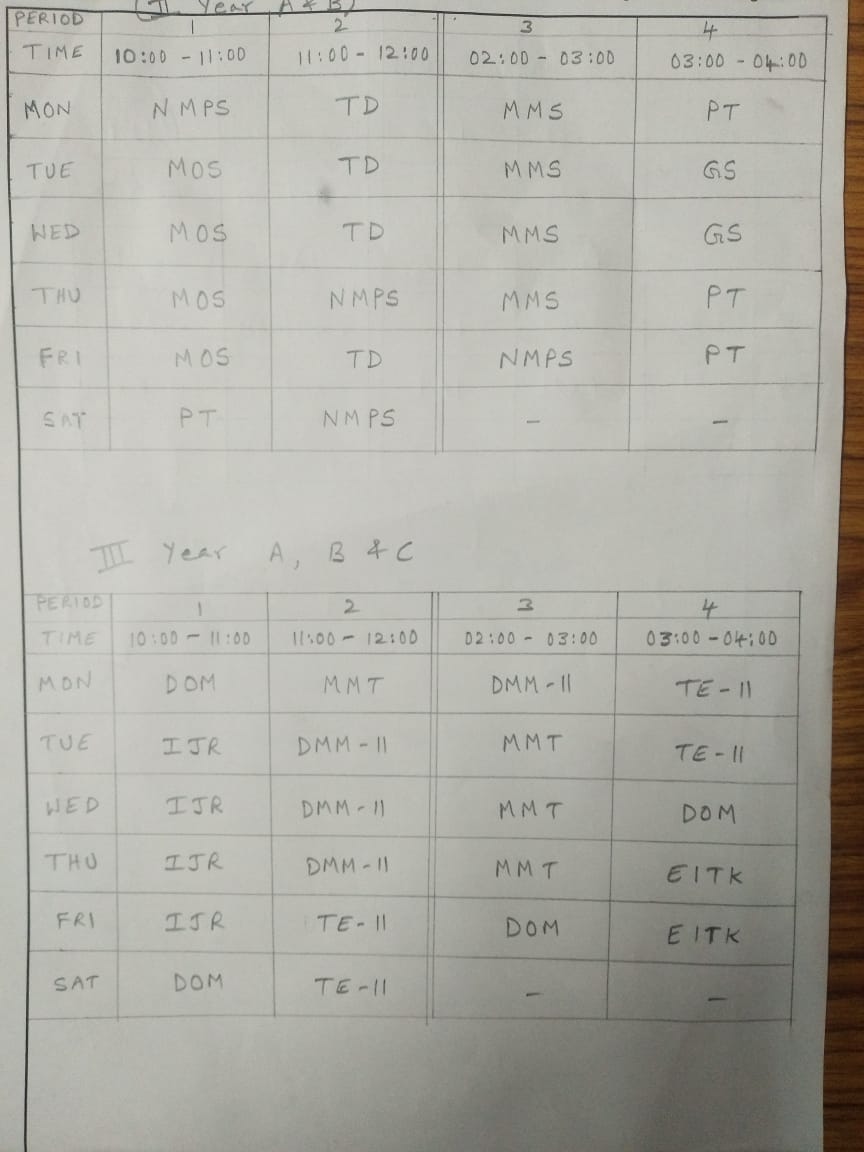 (II Year A & B)
PERIOD 1 2 3 4
TIME 10:00 - 11:00 11:00 - 12:00 02:00 - 03:00 03:00 - 04:00
MON NMPS TD MMS PT
TUE MOS TD MMS GS
WED MOS TD MMS GS
THU MOS NMPS MMS PT
FRI MOS TD NMPS PT
SAT PT NMPS - -
III Year A, B & C
PERIOD 1 2 3 4
TIME 10:00 - 11:00 11:00 - 12:00 02:00 - 03:00 03:00 - 04:00
MON DOM MMT DMM-II TE-II
TUE IJR DMM-II MMT TE-II
WED IJR DMM-II MMT DOM
THU IJR DMM-II MMT EITK
FRI IJR TE-II DOM EITK
SAT DOM TE-II - -